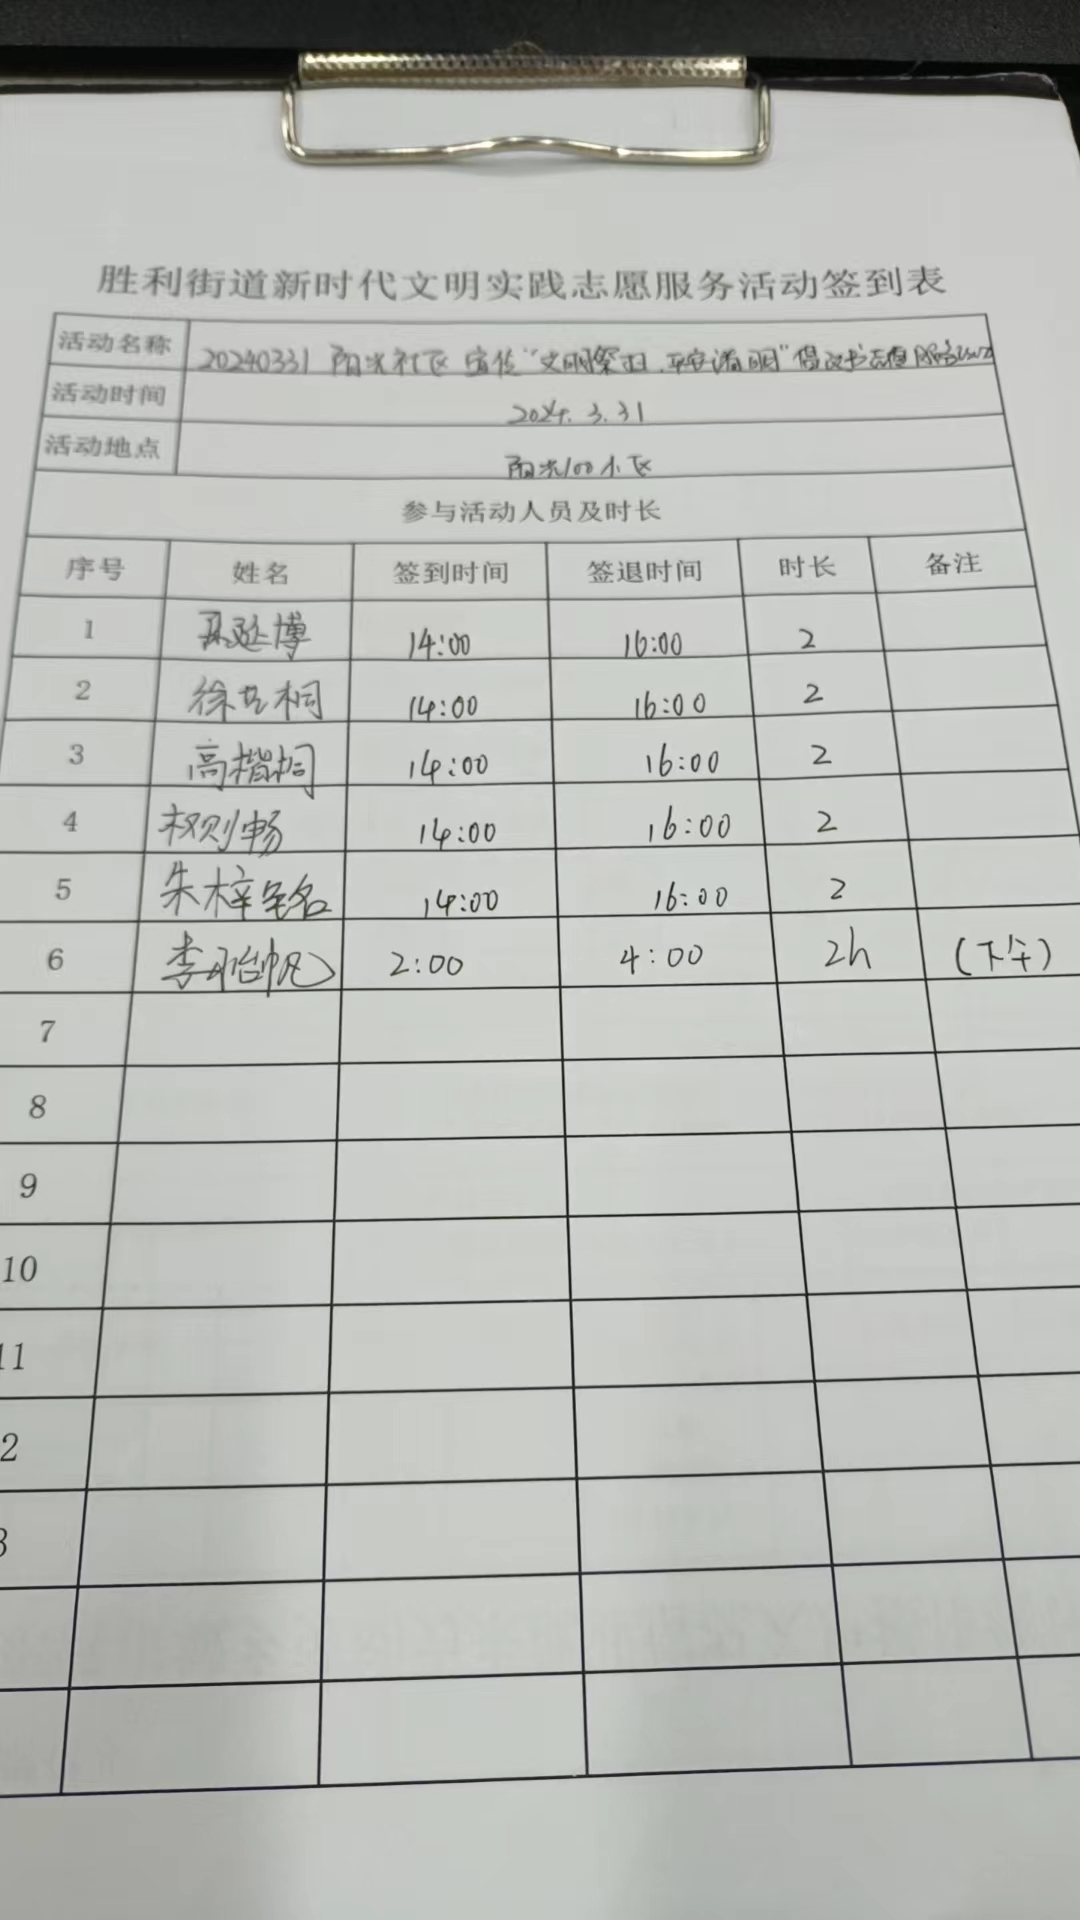 胜利街道新时代文明实践志愿服务活动签到表
活动名称 20240331 阳光社区 宣传“文明祭扫、平安清明”倡议书志愿服务活动
活动时间 2024.3.31
活动地点 阳光100小区
参与活动人员及时长
序号 姓名 签到时间 签退时间 时长 备注
1 14:00 16:00 2
2 14:00 16:00 2
3 高楷桐 14:00 16:00 2
4 权则畅 14:00 16:00 2
5 朱梓铭 14:00 16:00 2
6 2:00 4:00 2h (下午)
7
8
9
10
11
2
3